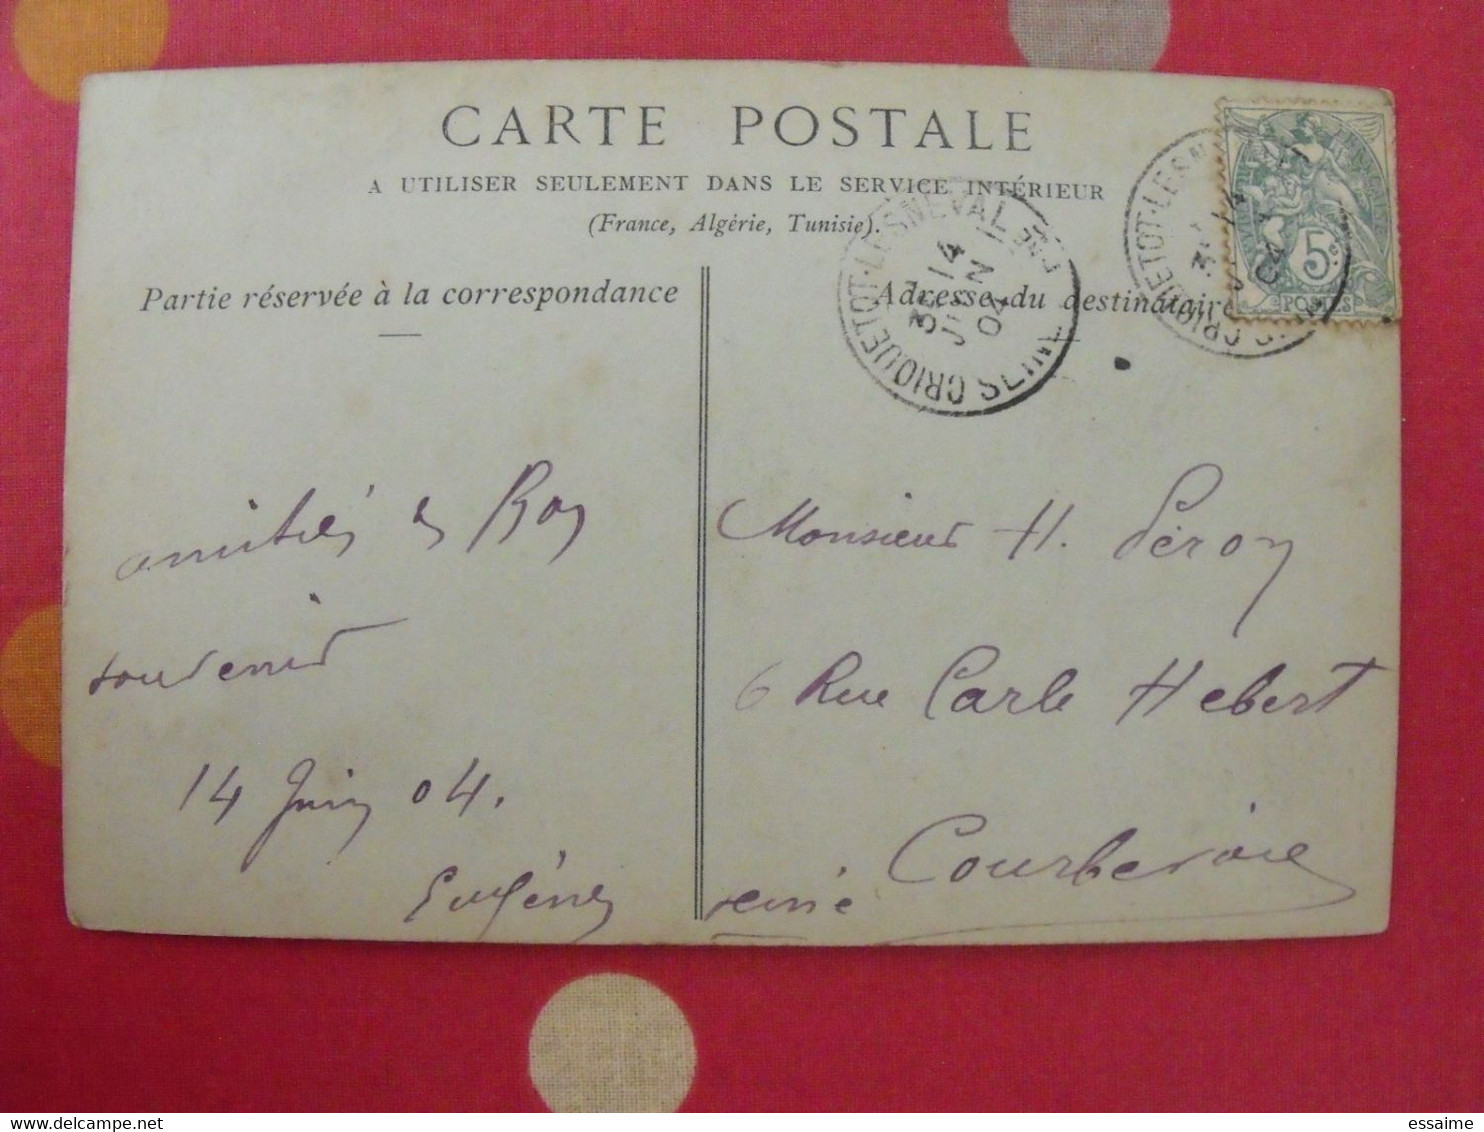 CARTE POSTALE
A UTILISER SEULEMENT DANS LE SERVICE INTÉRIEUR
(France, Algérie, Tunisie).
Partie réservée à la correspondance
Adresse du destinataire
CRIQUETOT-LESNEVAL
3E 14
JUIN
04
SEINE INF
CRIQUETOT-LESN
14
04
5c
POSTES
amitiés & Bon
souvenir
14 Juin 04.
Eugène
Monsieur H. Péron
6 Rue Carle Hebert
Courbevoie
seine
essaime